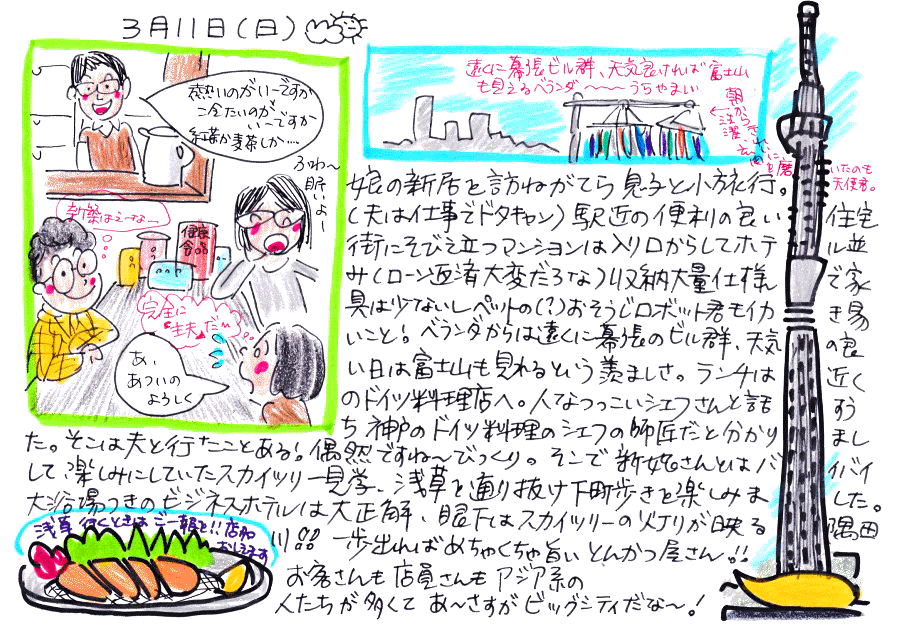 3月11日(日)
熱いのがいーですか
冷たいのがいーですか
紅茶か麦茶しか….
ふわ〜
眠いよー
新築はえーな〜
健康
食品
完全に
"主夫"だ〜。。
あ、
あついの
よろしく
遠くに幕張ビル群、天気良ければ富士山
も見えるベランダ〜〜〜うらやまい
朝から
いたのも
天使君。
娘の新居を訪ねがてら 息子と小旅行。
(夫は仕事でドタキャン) 駅近の便利の良い 住宅
街にそびえ立つマンションは入り口からしてホテル並
み(ローン返済大変だろな)収納大量仕様で家
具は少ないしペットの(?)おそうじロボット君も働き易
いこと! ベランダからは遠くに幕張のビル群、天気の良
い日は富士山も見れるという羨ましさ。ランチは近く
のドイツ料理店へ。人なつっこいシェフさんと話すう
ち 神戸のドイツ料理のシェフの師匠だと分かりまし
た。そこは夫と行たことある。偶然ですね〜びっくり。そこで新姫さんとはバイバイ
して、楽しみにしていたスカイツリー見学、浅草を通り抜け下町歩きを楽しみました。
大浴場つきのビジネスホテルは大正解、眼下はスカイツリーの灯りが映る 隅田
川!! 一歩出ればめちゃくちゃ旨いとんかつ屋さん!!
お客さんも店員さんもアジア系の
人たちが多くて あ〜さすがビッグシティだな〜!
浅草行くときはご一報を!! 店名
おしえます